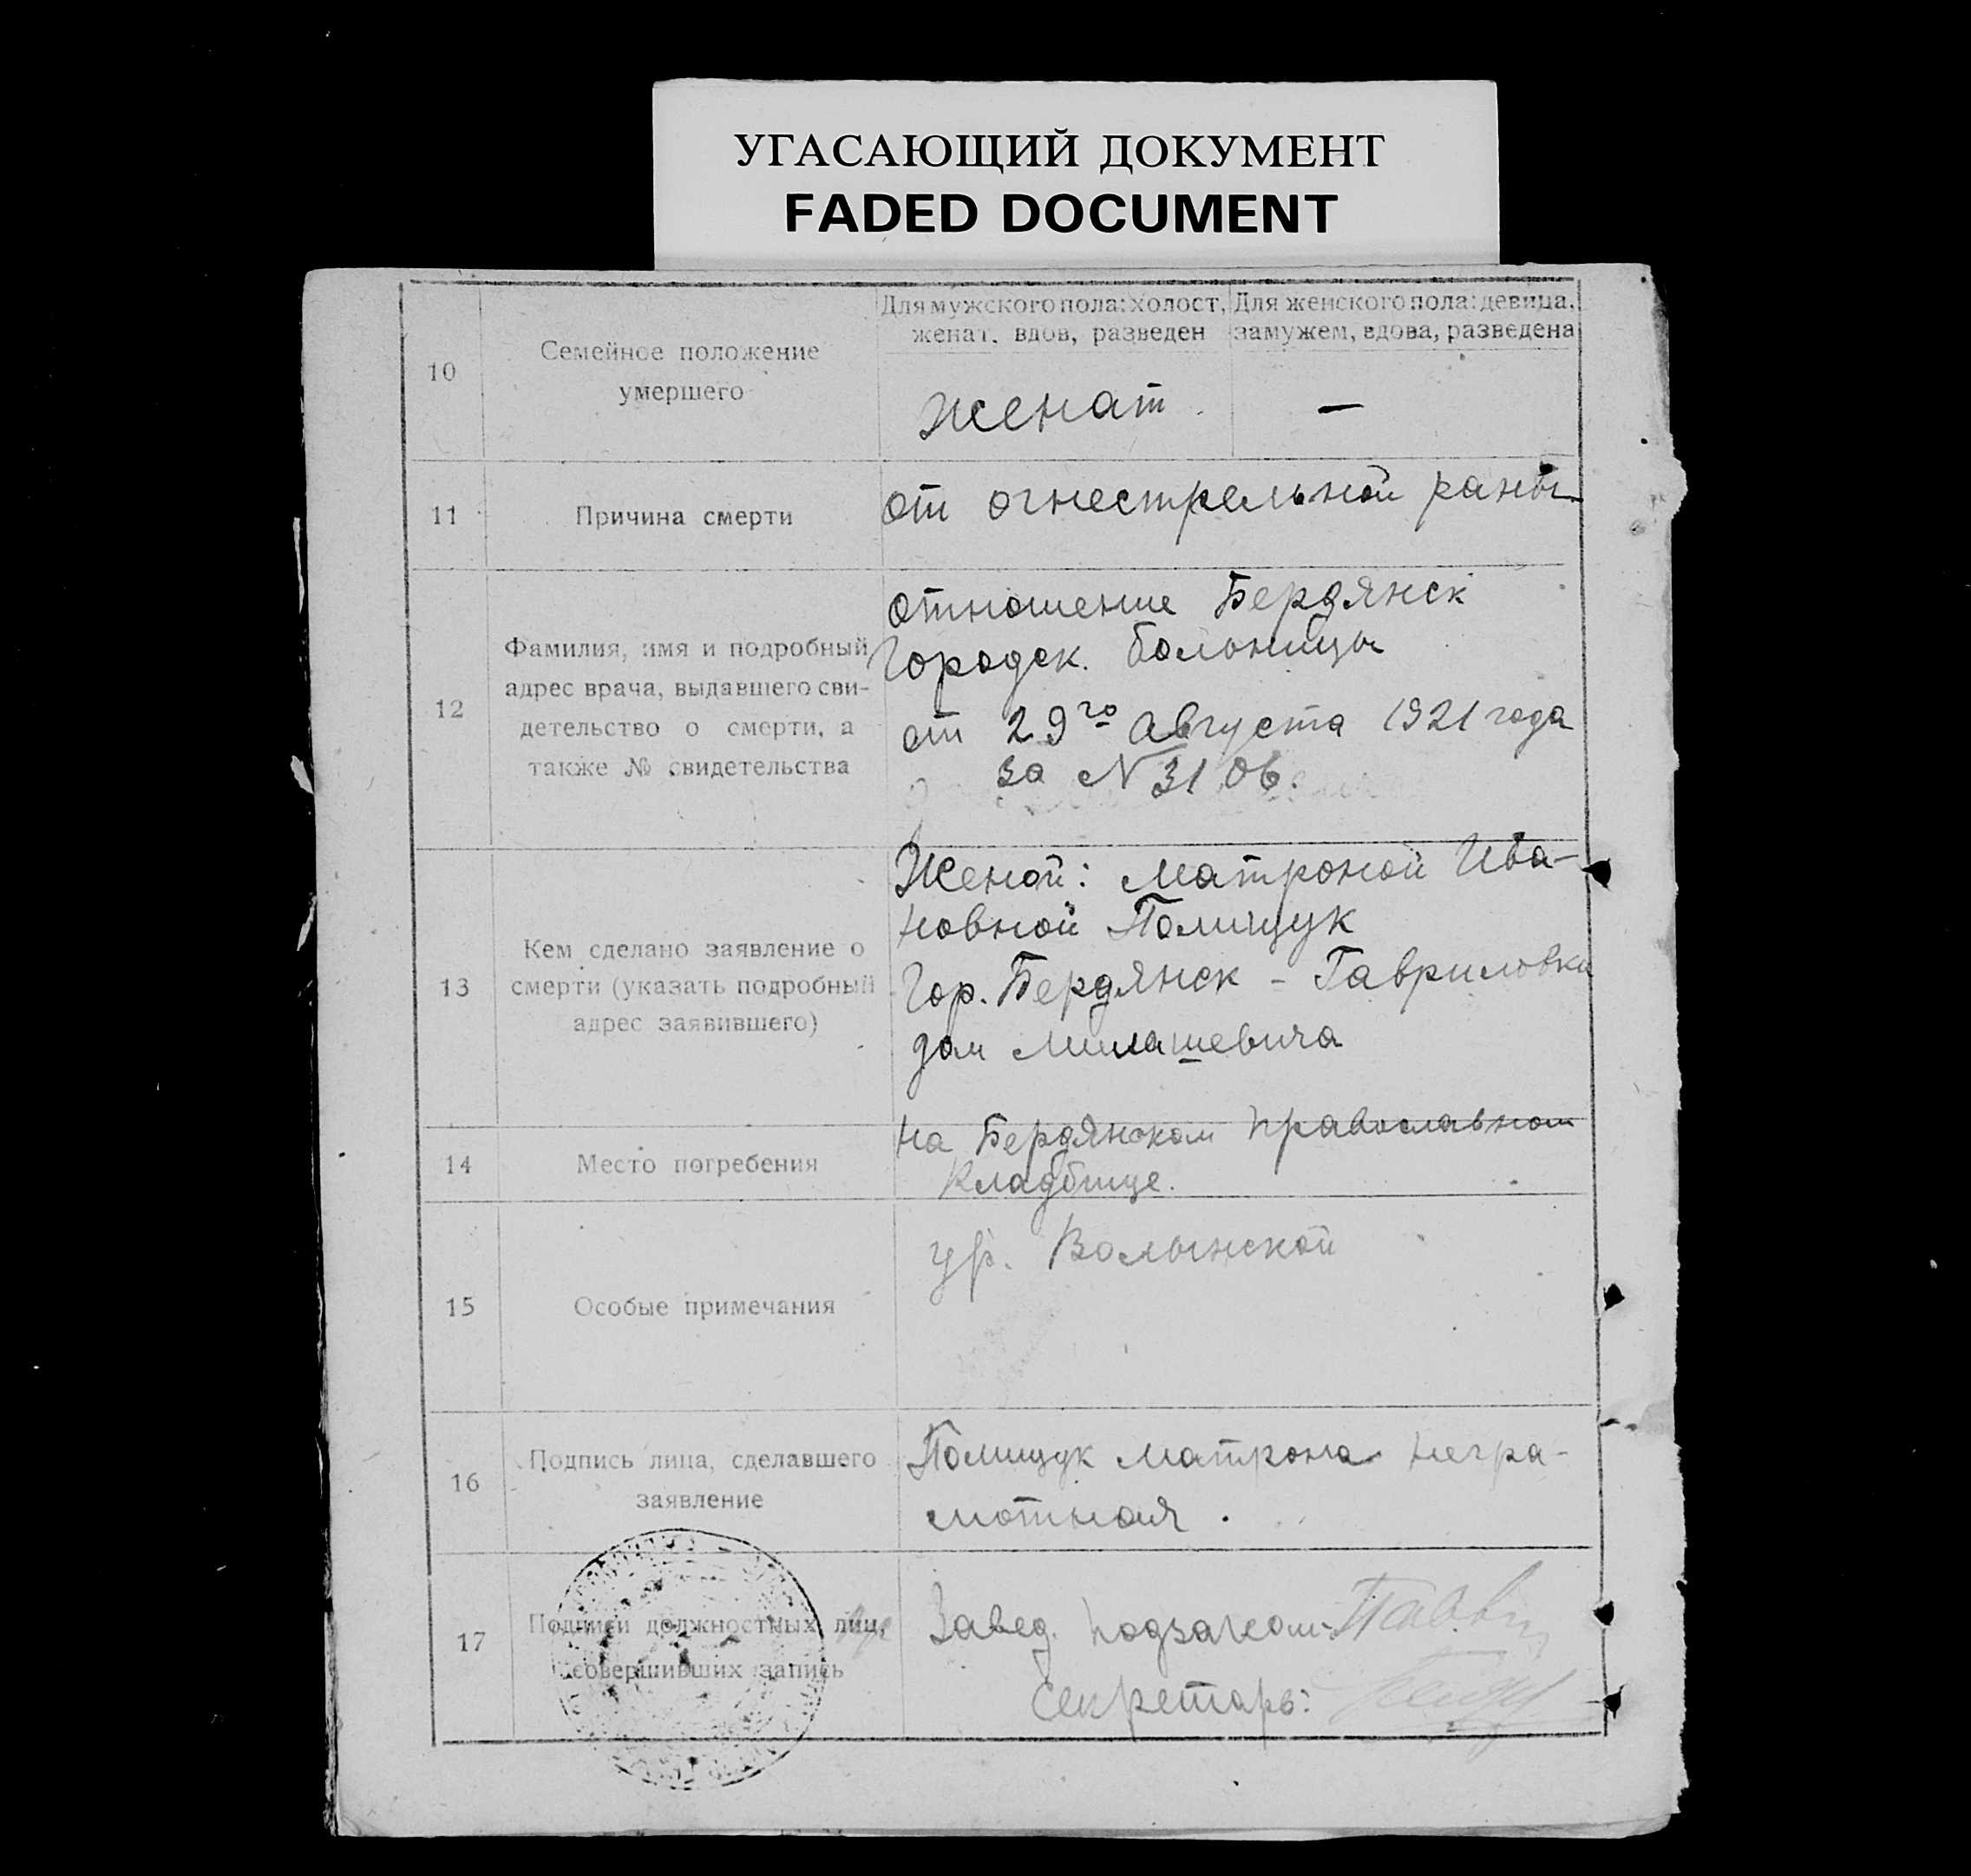 УГАСАЮЩИЙ ДОКУМЕНТ
FADED DOCUMENT
10
Семейное положение
умершего
Для мужского пола: холост,
женат, вдов, разведен
Для женского пола: девица,
замужем, вдова, разведена
женат.
—
11
Причина смерти
от огнестрельной раны
12
Фамилия, имя и подробный
адрес врача, выдавшего сви-
детельство о смерти, а
также № свидетельства
Отношение Бердянск
Городск. больницы
от 29го Августа 1921 года
за N 3106.
13
Кем сделано заявление о
смерти (указать подробный
адрес заявившего)
Женой: Матроной Ива-
новной Полищук
Гор. Бердянск - Гавриловка
дом Милашевича
14
Место погребения
На Бердянском православном
Кладбище.
15
Особые примечания
ур. Волынской
16
Подпись лица, сделавшего
заявление
Полищук Матрона негра-
мотная.
17
Подписи должностных лиц,
совершивших запись
Завед. подзагсом:
Секретарь: